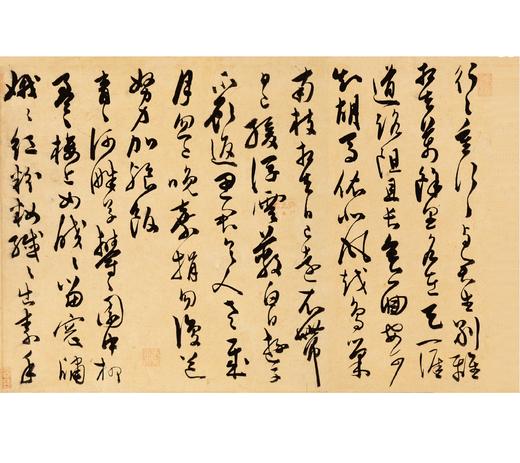 行々重行々与君生別離
相去萬餘里各在天一涯
道路阻且長會面安可
知胡馬依北風越鳥巢
南枝相去日已遠衣帶
日已緩浮雲蔽白日遊子
不顧返思君令人老歲
月忽已晚棄捐勿復道
努力加飱飯
青々河畔草鬱々園中柳
盈々樓上女皎々當窗牖
娥々紅粉妝纖々出素手